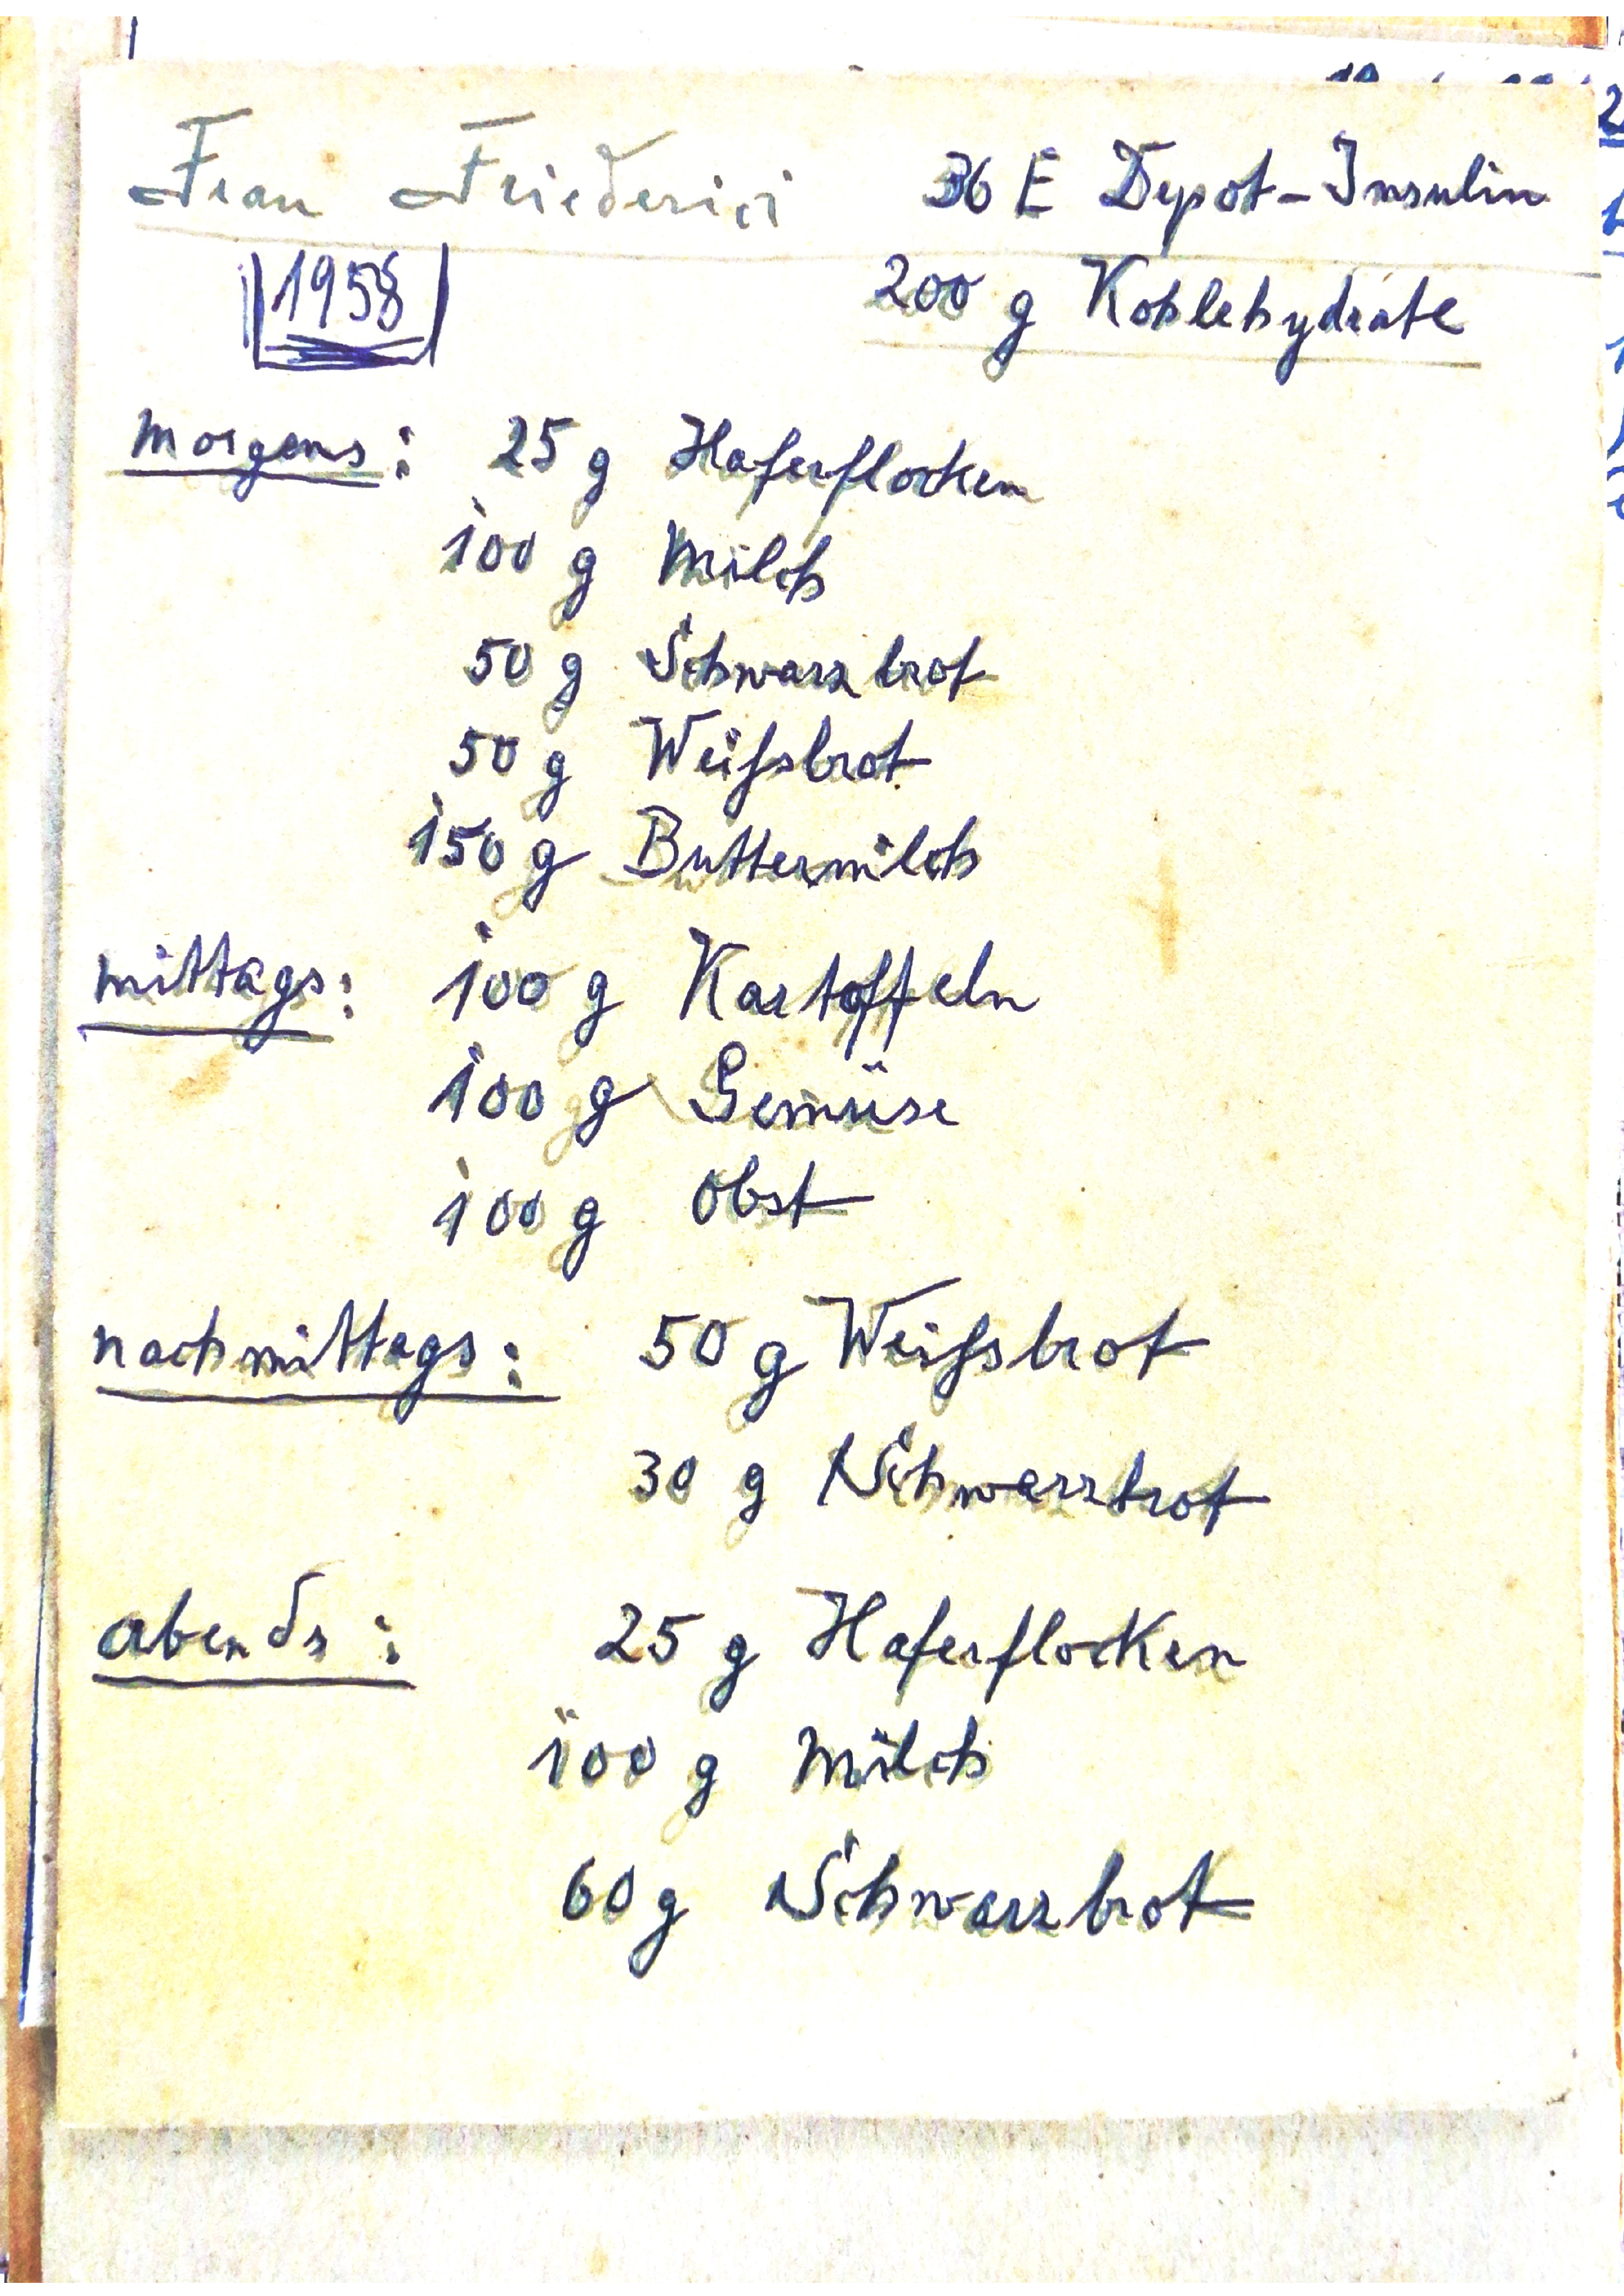 Frau Friederici 36 E Depot-Insulin
1958 200 g Kohlehydrate
morgens: 25 g Haferflocken
100 g Milch
50 g Schwarzbrot
50 g Weißbrot
150 g Buttermilch
mittags: 100 g Kartoffeln
100 g Gemüse
100 g Obst
nachmittags: 50 g Weißbrot
30 g Schwarzbrot
abends: 25 g Haferflocken
100 g Milch
60 g Schwarzbrot